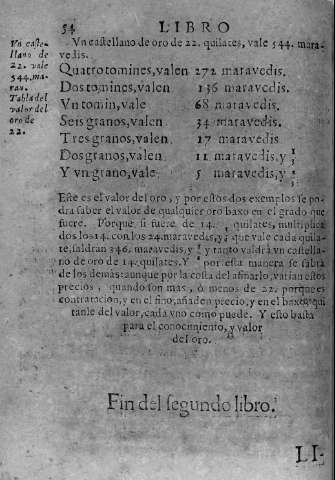 54 LIBRO
Vn castellano de oro de 22. quilates, vale 544. mara-
vedis.
Vn caste-
llano de
22. vale
544. ma-
rau.
Tabla del
valor del
oro de
22.
Quatro tomines, valen 272 maravedis.
Dos tomines, valen 136 maravedis.
Vn tomin, vale 68 maravedis.
Seis granos, valen 34 maravedis.
Tres granos, valen 17 maravedis.
Dos granos, valen 11 maravedis, y 1/3
Y vn grano, vale 5 maravedis, y
Este es el valor del oro, y por estos dos exemplos se po-
dra saber el valor de qualquier oro baxo en el grado que
fuere. Porque si fuere de 14. quilates, multiplica-
dos los 14. con los 24. maravedis, y que vale cada quila-
te, saldran 346. maravedis, y tanto valdra vn castella-
no de oro de 14. quilates. Y por esta manera se sabra
de los demas: aunque por la costa del afinarlo, varian estos
precios, quando son mas, ò menos de 22. porque es
contratacion, y en el fino, añaden precio, y en el baxo qui
tanle del valor, cada vno como puede. Y esto basta
para el conocimiento, y valor
del oro.
Fin del segundo libro.
LI-